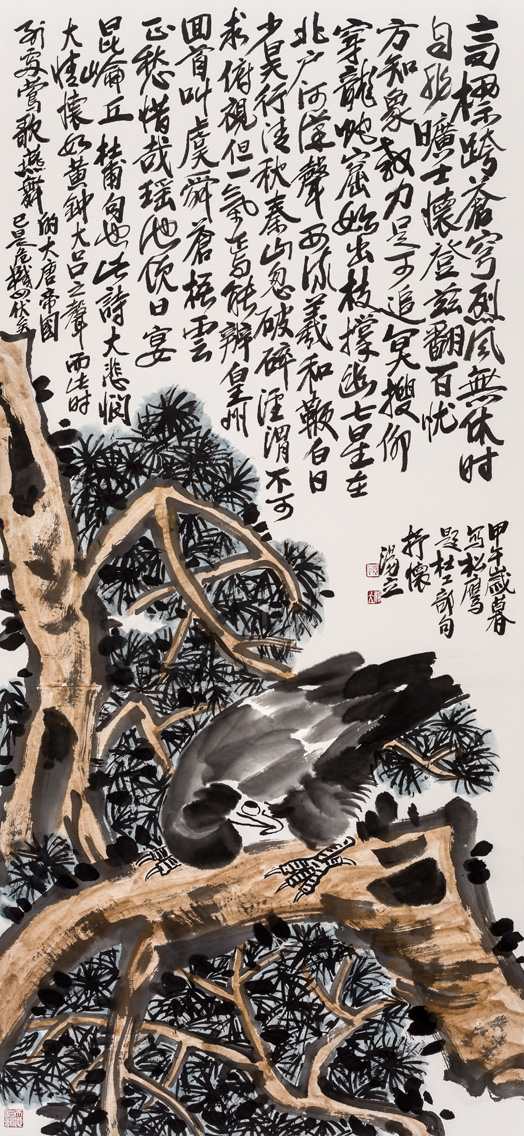 高標跨蒼穹烈風無休时
自非曠士懷登兹翻百忧
方知象教力足可追冥搜仰
穿龍蛇窟始出枝撑幽七星在
北户河漢聲西流羲和鞭白日
少昊行清秋秦山忽破碎涇渭不可
求俯視但一氣焉能辨皇州
回首叫虞舜蒼梧雲
正愁惜哉瑶池饮日宴
昆崙丘 杜甫句也此詩大悲悯
大情懷如黄鈡大吕之聲而时
到處鶯歌燕舞的大唐帝國
已是危機四伏矣
甲午歲暮
寫松鷹
題杜工部句
抒懷
湯立